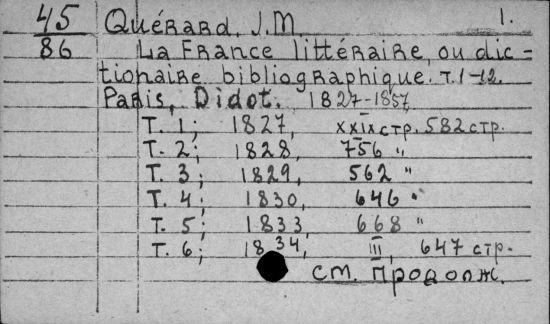 45 Quérard, J.M. 1.
86 La France littéraire, ou dic=
tionaire bibliographique. T.1-12.
Paris, Didot. 1827-1857
T. 1; 1827, XXIX стр. 582 стр.
T. 2; 1828, 756 "
T. 3; 1829, 562 "
T. 4; 1830, 646 "
T. 5; 1833, 668 "
T. 6; 1834, III, 647 стр.
см. продолж.